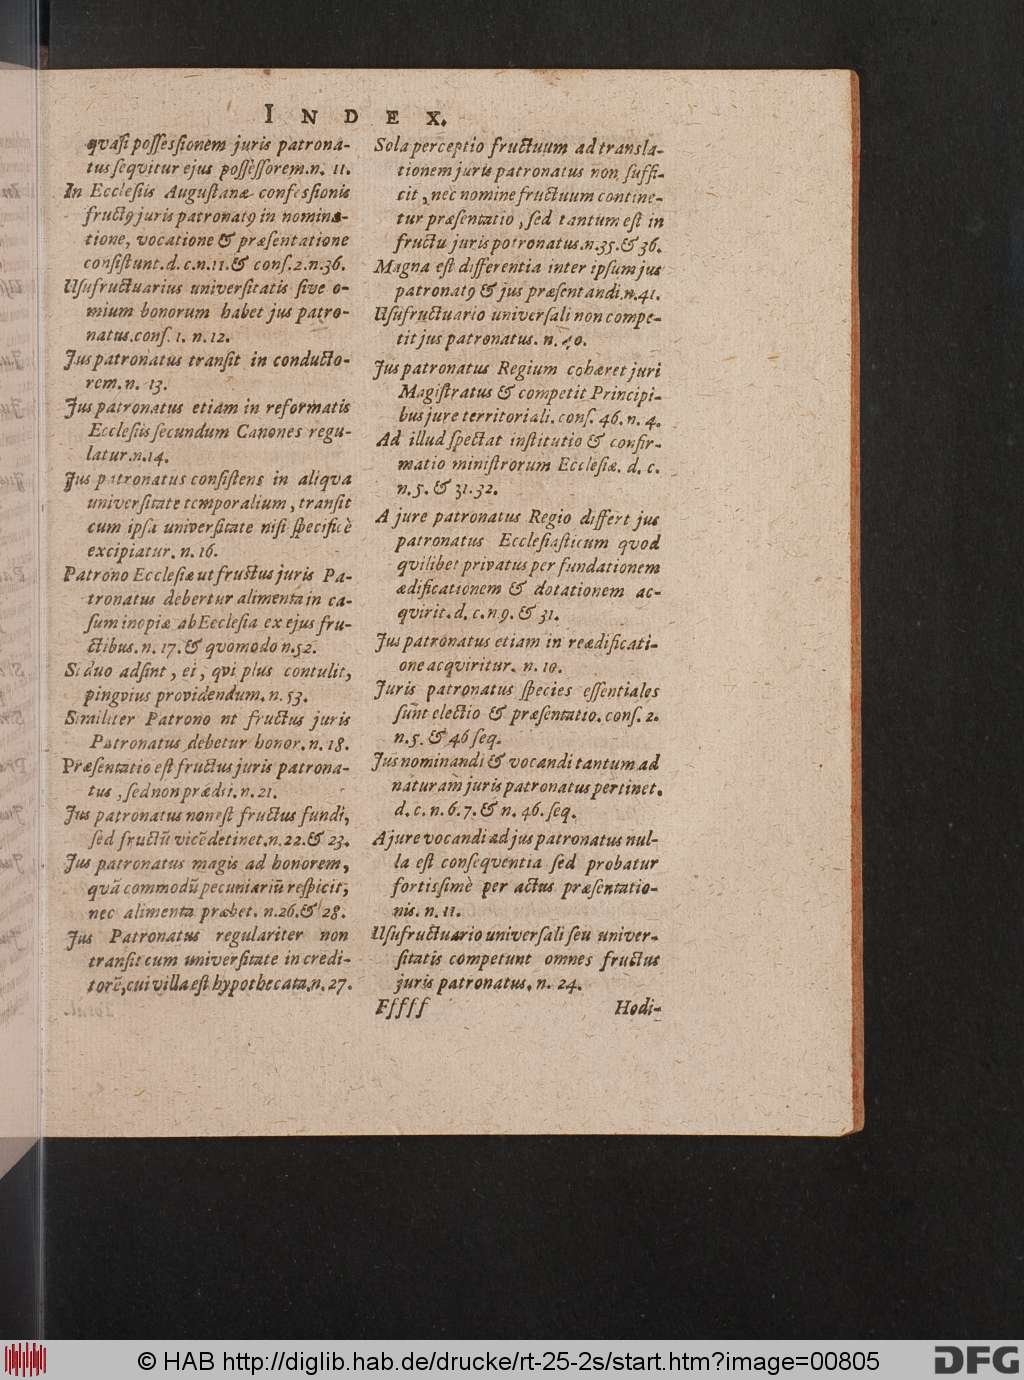 INDEX.
quasi possessionem juris patrona-
tus seqvitur ejus possessorem. n. 11.
In Ecclesiis Augustanæ confessionis
fructꝰ juris patronatꝰ in nomina-
tione, vocatione & præsentatione
consistunt. d. c. n. 11. & cons. 2. n. 36.
Usufructuarius universitatis sive o-
mium bonorum habet jus patro-
natus. cons. 1. n. 12.
Jus patronatus transit in conducto-
rem. n. 13.
Jus patronatus etiam in reformatis
Ecclesiis secundum Canones regu-
latur. n. 14.
Jus patronatus consistens in aliqva
universitate temporalium, transit
cum ipsa universitate nisi specificè
excipiatur. n. 16.
Patrono Ecclesiæ ut fructus juris Pa-
tronatus debertur alimenta in ca-
sum inopiæ ab Ecclesia ex ejus fru-
ctibus. n. 17. & qvomodo n. 52.
Si duo adsint, ei, qvi plus contulit,
pingvius providendum. n. 53.
Similiter Patrono nt fructus juris
Patronatus debetur honor. n. 18.
Præsentatio est fructus juris patrona-
tus, sed non prædii. n. 21.
Jus patronatus non est fructus fundi,
sed fructũ vicẽ detinet. n. 22. & 23.
Jus patronatus magis ad honorem,
quã commodũ pecuniariũ respicit,
nec alimenta præbet. n. 26. & 28.
Jus Patronatus regulariter non
transit cum universitate in credi-
torẽ, cui villa est hypothecata. n. 27.
Sola perceptio fructuum ad transla-
tionem juris patronatus non suffi-
cit, nec nomine fructuum contine-
tur præsentatio, sed tantum est in
fructu juris potronatus. n. 35. & 36.
Magna est differentia inter ipsum jus
patronatꝰ & jus præsentandi. n. 41.
Usufructuario universali non compe-
tit jus patronatus. n. 40.
Jus patronatus Regium cohæret juri
Magistratus & competit Principi-
bus jure territoriali. cons. 46. n. 4.
Ad illud spectat institutio & confir-
matio ministrorum Ecclesiæ. d. c.
n. 5. & 31. 32.
A jure patronatus Regio differt jus
patronatus Ecclesiasticum qvod
qvilibet privatus per fundationem
ædificationem & dotationem ac-
qvirit. d. c. n 9. & 31.
Jus patronatus etiam in reædificati-
one acqviritur. n. 10.
Juris patronatus species essentiales
sunt electio & præsentatio. cons. 2.
n. 5. & 46 seq.
Jus nominandi & vocandi tantum ad
naturam juris patronatus pertinet.
d. c. n. 6. 7. & n. 46. seq.
A jure vocandi ad jus patronatus nul-
la est conseqventia sed probatur
fortissimè per actus præsentatio-
nis. n. 11.
Usufructuario universali seu univer-
sitatis competunt omnes fructus
juris patronatus. n. 24.
Fffff
Hodi-
© HAB http://diglib.hab.de/drucke/rt-25-2s/start.htm?image=00805
DFG